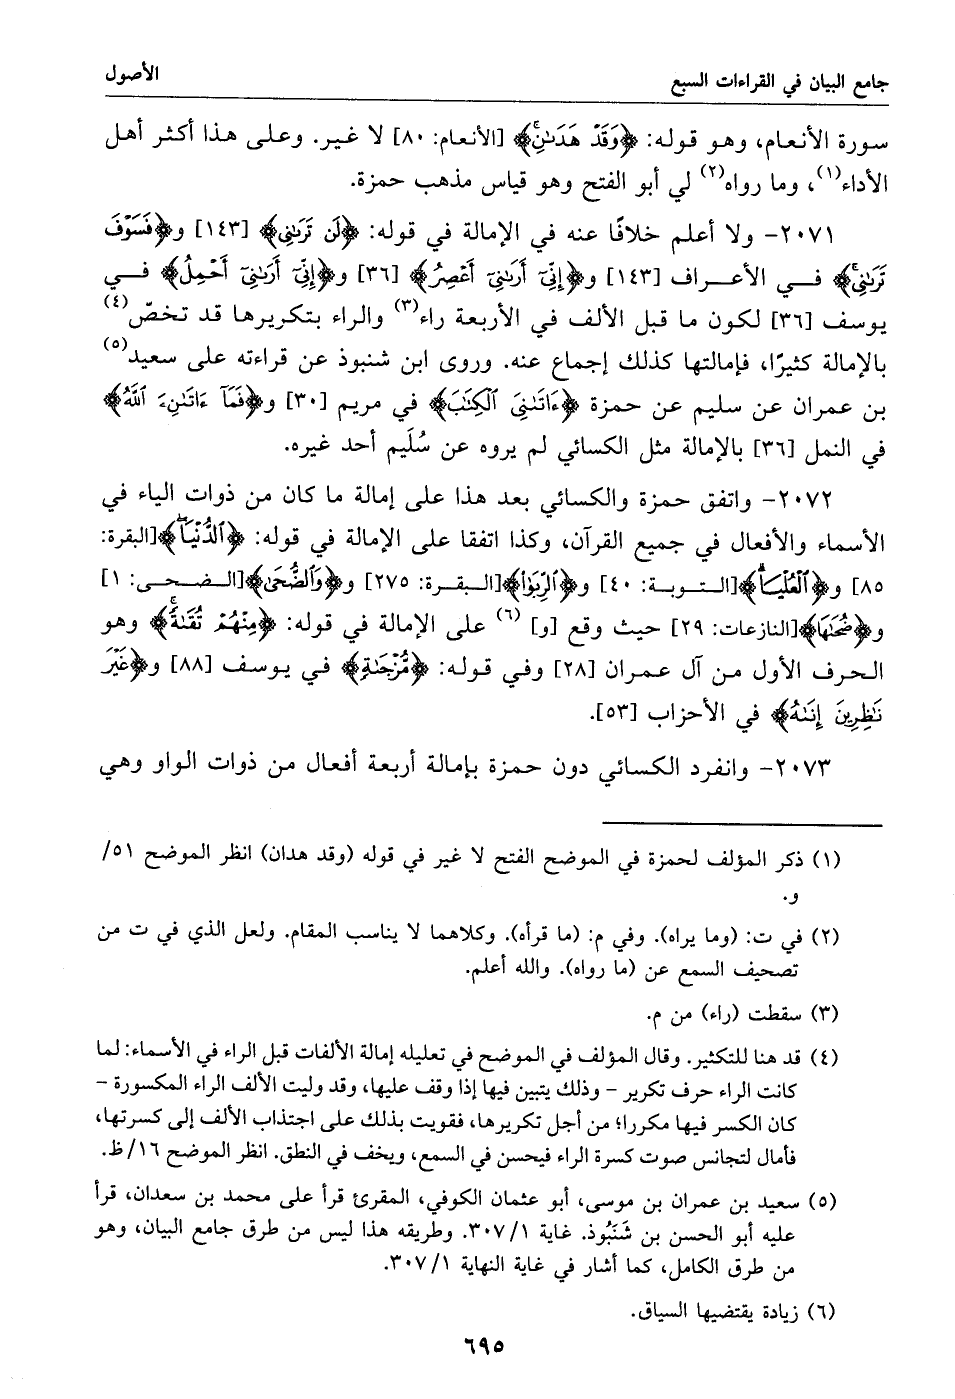 جامع البيان في القراءات السبع
الأصول
سورة الأنعام، وهو قوله: ﴿وَقَدْ هَدَىٰنِۚ﴾ [الأنعام: ٨٠] لا غير. وعلى هذا أكثر أهل
الأداء(١)، وما رواه(٢) لي أبو الفتح وهو قياس مذهب حمزة.
٢٠٧١- ولا أعلم خلافًا عنه في الإمالة في قوله: ﴿لَن تَرَىٰنِي﴾ [١٤٣] و﴿فَسَوْفَ
تَرَىٰنِيۚ﴾ فـي الأعـراف [١٤٣] و﴿إِنِّيٓ أَرَىٰنِيٓ أَعْصِرُ﴾ [٣٦] و﴿إِنِّيٓ أَرَىٰنِيٓ أَحْمِلُ﴾ فـي
يوسف [٣٦] لكون ما قبل الألف في الأربعة راء(٣) والراء بتكريرها قد تخصّ(٤)
بالإمالة كثيرًا، فإمالتها كذلك إجماع عنه. وروى ابن شنبوذ عن قراءته على سعيد(٥)
بن عمران عن سليم عن حمزة ﴿ءَاتَىٰنِيَ ٱلْكِتَٰبَ﴾ في مريم [٣٠] و﴿فَمَآ ءَاتَىٰنِۦَ ٱللَّهُ﴾
في النمل [٣٦] بالإمالة مثل الكسائي لم يروه عن سُلَيم أحد غيره.
٢٠٧٢- واتفق حمزة والكسائي بعد هذا على إمالة ما كان من ذوات الياء في
الأسماء والأفعال في جميع القرآن، وكذا اتفقا على الإمالة في قوله: ﴿ٱلدُّنْيَاۖ﴾[البقرة:
٨٥] و﴿ٱلْعُلْيَاۗ﴾[الـتـوبـة: ٤٠] و﴿ٱلرِّبَوٰا۟﴾[الـبـقـرة: ٢٧٥] و﴿وَٱلضُّحَىٰ﴾[الـضـحـى: ١]
و﴿ضُحَىٰهَا﴾[النازعات: ٢٩] حيث وقع [و](٦) على الإمالة في قوله: ﴿مِنْهُمْ تُقَىٰةًۗ﴾ وهو
الحرف الأول من آل عمران [٢٨] وفي قوله: ﴿مُّزْجَىٰةٍ﴾ في يوسف [٨٨] و﴿غَيْرَ
نَٰظِرِينَ إِنَىٰهُ﴾ في الأحزاب [٥٣].
٢٠٧٣- وانفرد الكسائي دون حمزة بإمالة أربعة أفعال من ذوات الواو وهي
(١) ذكر المؤلف لحمزة في الموضح الفتح لا غير في قوله (وقد هدان) انظر الموضح ٥١/
و.
(٢) في ت: (وما يراه). وفي م: (ما قرأه). وكلاهما لا يناسب المقام. ولعل الذي في ت من
تصحيف السمع عن (ما رواه). والله أعلم.
(٣) سقطت (راء) من م.
(٤) قد هنا للتكثير. وقال المؤلف في الموضح في تعليله إمالة الألفات قبل الراء في الأسماء: لما
كانت الراء حرف تكرير - وذلك يتبين فيها إذا وقف عليها، وقد وليت الألف الراء المكسورة -
كان الكسر فيها مكررا؛ من أجل تكريرها، فقويت بذلك على اجتذاب الألف إلى كسرتها،
فأمال لتجانس صوت كسرة الراء فيحسن في السمع، ويخف في النطق. انظر الموضح ١٦/ظ.
(٥) سعيد بن عمران بن موسى، أبو عثمان الكوفي، المقرئ قرأ على محمد بن سعدان، قرأ
عليه أبو الحسن بن شَنَبُوذ. غاية ٣٠٧/١. وطريقه هذا ليس من طرق جامع البيان، وهو
من طرق الكامل، كما أشار في غاية النهاية ٣٠٧/١.
(٦) زيادة يقتضيها السياق.
٦٩٥